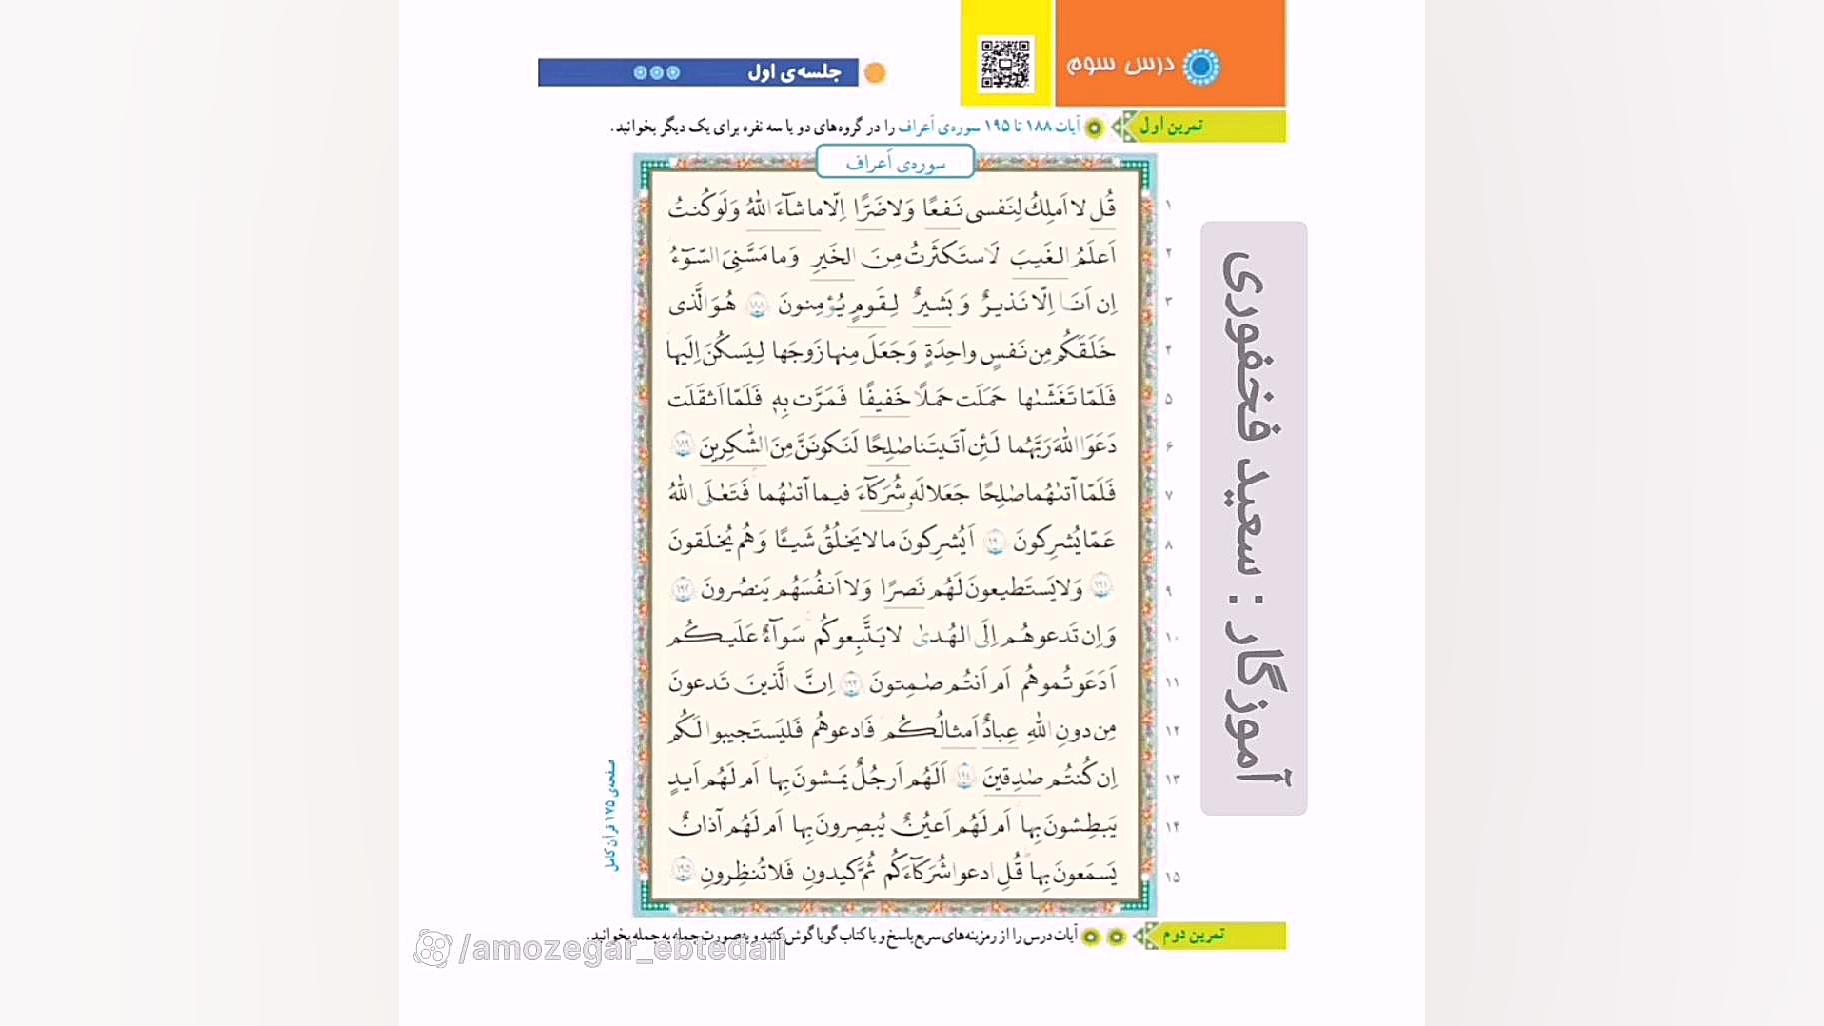 درس سوم
جلسه‌ی اول
تمرین اول
آیات ۱۸۸ تا ۱۹۵ سوره‌ی اَعراف را در گروه‌های دو یا سه نفره برای یک دیگر بخوانید.
سوره‌ی اَعراف
۱ قُل لا اَملِكُ لِنَفسی نَفعًا وَلا ضَرًّا اِلّا ما شآءَ اللّٰهُ وَلَو كُنتُ
۲ اَعلَمُ الغَیبَ لَاستَكثَرتُ مِنَ الخَیرِ وَما مَسَّنِیَ السّوٓءُ
۳ اِن اَنَا اِلّا نَذیرٌ وَ بَشیرٌ لِقَومٍ یُؤمِنونَ ۱۸۸ هُوَ الَّذی
۴ خَلَقَكُم مِن نَفسٍ واحِدَةٍ وَجَعَلَ مِنها زَوجَها لِیَسكُنَ اِلَیها
۵ فَلَمّا تَغَشّٰىها حَمَلَت حَملًا خَفیفًا فَمَرَّت بِهٖ فَلَمّا اَثقَلَت
۶ دَعَوَا اللّٰهَ رَبَّهُما لَئِن آتَیتَنا صٰلِحًا لَنَكونَنَّ مِنَ الشّٰكِرینَ ۱۸۹
۷ فَلَمّا آتىٰهُما صٰلِحًا جَعَلا لَهٗ شُرَكآءَ فیما آتىٰهُما فَتَعٰلَى اللّٰهُ
۸ عَمّا یُشرِكونَ ۱۹۰ اَیُشرِكونَ ما لا یَخلُقُ شَیئًا وَهُم یُخلَقونَ
۹ ۱۹۱ وَلا یَستَطیعونَ لَهُم نَصرًا وَلا اَنفُسَهُم یَنصُرونَ ۱۹۲
۱۰ وَاِن تَدعوهُم اِلَى الهُدىٰ لا یَتَّبِعوكُم سَوآءٌ عَلَیكُم
۱۱ اَدَعَوتُموهُم اَم اَنتُم صٰمِتونَ ۱۹۳ اِنَّ الَّذینَ تَدعونَ
۱۲ مِن دونِ اللّٰهِ عِبادٌ اَمثالُكُم فَادعوهُم فَلیَستَجیبوا لَكُم
۱۳ اِن كُنتُم صٰدِقینَ ۱۹۴ اَلَهُم اَرجُلٌ یَمشونَ بِها اَم لَهُم اَیدٍ
۱۴ یَبطِشونَ بِها اَم لَهُم اَعیُنٌ یُبصِرونَ بِها اَم لَهُم آذانٌ
۱۵ یَسمَعونَ بِها قُلِ ادعوا شُرَكآءَكُم ثُمَّ كیدونِ فَلا تُنظِرونِ ۱۹۵
صفحه‌ی ۱۷۵ قرآن کامل
آموزگار : سعید فخفوری
تمرین دوم
آیات درس را از رمزینه‌های سریع پاسخ و یا کتاب گویا گوش کنید و به صورت جمله به جمله بخوانید.
/amozegar_ebtedaii